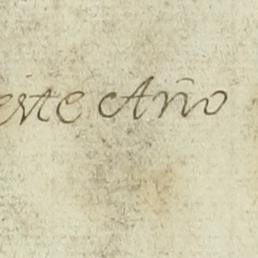 este Año